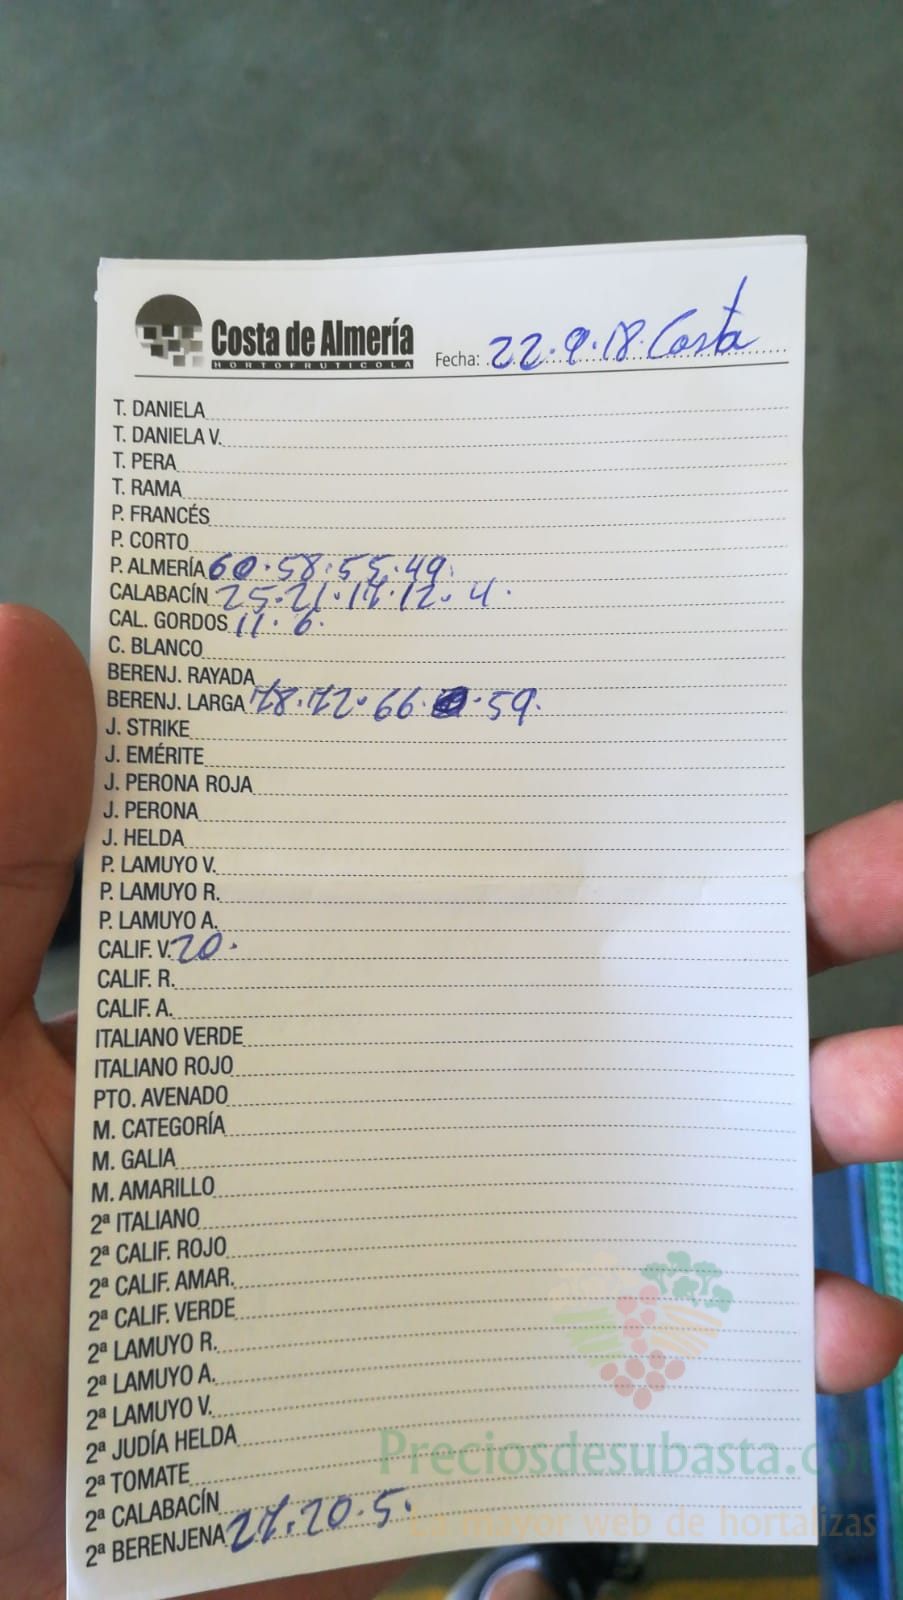 Costa de Almería
HORTOFRUTICOLA
Fecha: 22.9.18. Costa
T. DANIELA
T. DANIELA V.
T. PERA
T. RAMA
P. FRANCÉS
P. CORTO
P. ALMERÍA 60.58.55.49.
CALABACÍN 25.21.17.12.4.
CAL. GORDOS 11.6.
C. BLANCO
BERENJ. RAYADA
BERENJ. LARGA 78.72.66.59.
J. STRIKE
J. EMÉRITE
J. PERONA ROJA
J. PERONA
J. HELDA
P. LAMUYO V.
P. LAMUYO R.
P. LAMUYO A.
CALIF. V. 20.
CALIF. R.
CALIF. A.
ITALIANO VERDE
ITALIANO ROJO
PTO. AVENADO
M. CATEGORÍA
M. GALIA
M. AMARILLO
2ª ITALIANO
2ª CALIF. ROJO
2ª CALIF. AMAR.
2ª CALIF. VERDE
2ª LAMUYO R.
2ª LAMUYO A.
2ª LAMUYO V.
2ª JUDÍA HELDA
2ª TOMATE
2ª CALABACÍN
2ª BERENJENA 27.20.5.
Preciosdesubasta.co
La mayor web de hortalizas